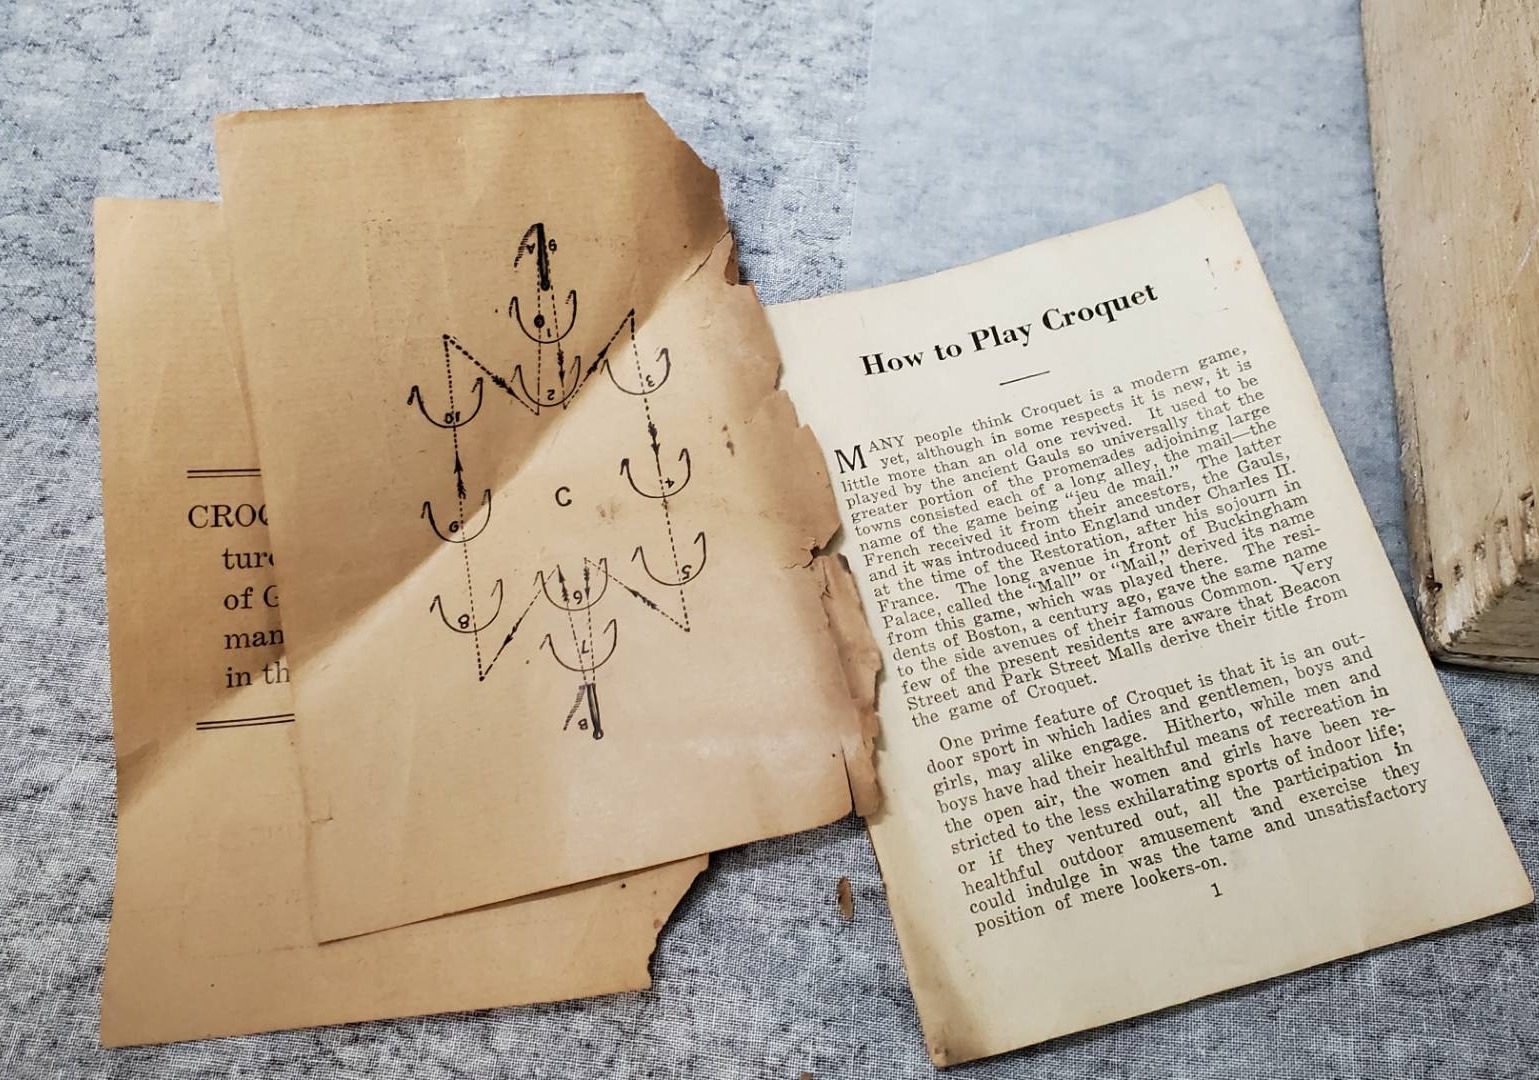 CROQ
ture
of G
man
in th
A 9
1
2
3
10
4
C
9
5
6
8
7
B
How to Play Croquet
MANY people think Croquet is a modern game,
yet, although in some respects it is new, it is
little more than an old one revived. It used to be
played by the ancient Gauls so universally that the
greater portion of the promenades adjoining large
towns consisted each of a long alley, the mail—the
name of the game being "jeu de mail." The latter
French received it from their ancestors, the Gauls,
and it was introduced into England under Charles II.
at the time of the Restoration, after his sojourn in
France. The long avenue in front of Buckingham
Palace, called the "Mall" or "Mail," derived its name
from this game, which was played there. The resi-
dents of Boston, a century ago, gave the same name
to the side avenues of their famous Common. Very
few of the present residents are aware that Beacon
Street and Park Street Malls derive their title from
the game of Croquet.
One prime feature of Croquet is that it is an out-
door sport in which ladies and gentlemen, boys and
girls, may alike engage. Hitherto, while men and
boys have had their healthful means of recreation in
the open air, the women and girls have been re-
stricted to the less exhilarating sports of indoor life;
or if they ventured out, all the participation in
healthful outdoor amusement and exercise they
could indulge in was the tame and unsatisfactory
position of mere lookers-on.
1